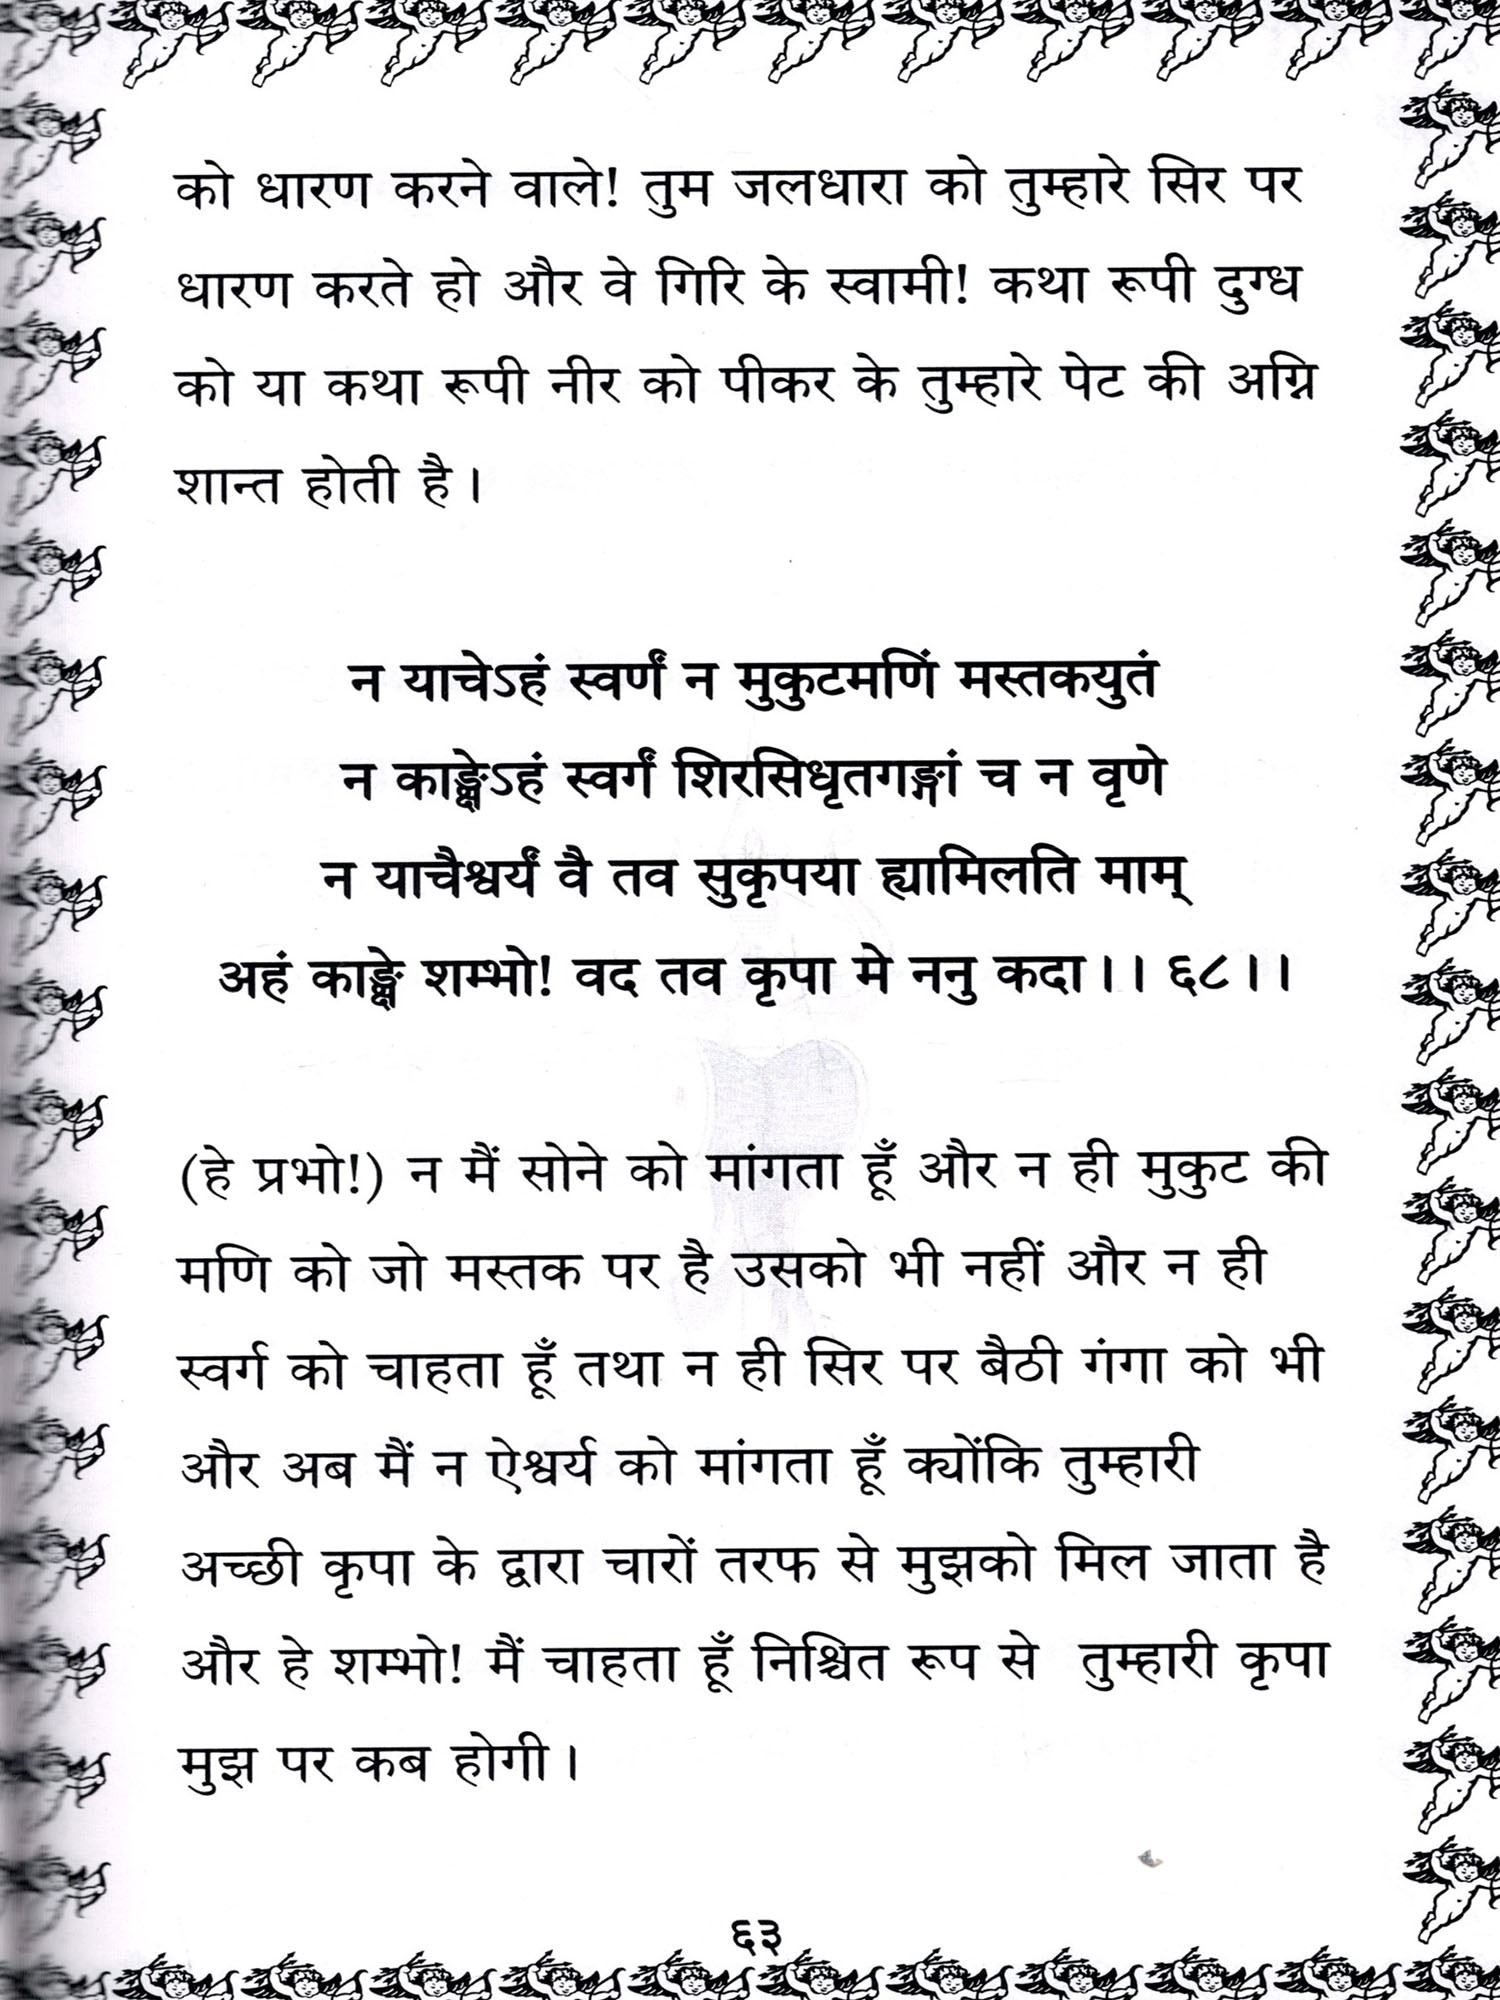 को धारण करने वाले! तुम जलधारा को तुम्हारे सिर पर
धारण करते हो और वे गिरि के स्वामी! कथा रूपी दुग्ध
को या कथा रूपी नीर को पीकर के तुम्हारे पेट की अग्नि
शान्त होती है।
न याचेऽहं स्वर्णं न मुकुटमणिं मस्तकयुतं
न काङ्क्षेऽहं स्वर्गं शिरसिधृतगङ्गां च न वृणे
न याचैश्वर्यं वै तव सुकृपया ह्यामिलति माम्
अहं काङ्क्षे शम्भो! वद तव कृपा मे ननु कदा।। ६८।।
(हे प्रभो!) न मैं सोने को मांगता हूँ और न ही मुकुट की
मणि को जो मस्तक पर है उसको भी नहीं और न ही
स्वर्ग को चाहता हूँ तथा न ही सिर पर बैठी गंगा को भी
और अब मैं न ऐश्वर्य को मांगता हूँ क्योंकि तुम्हारी
अच्छी कृपा के द्वारा चारों तरफ से मुझको मिल जाता है
और हे शम्भो! मैं चाहता हूँ निश्चित रूप से तुम्हारी कृपा
मुझ पर कब होगी।
६३